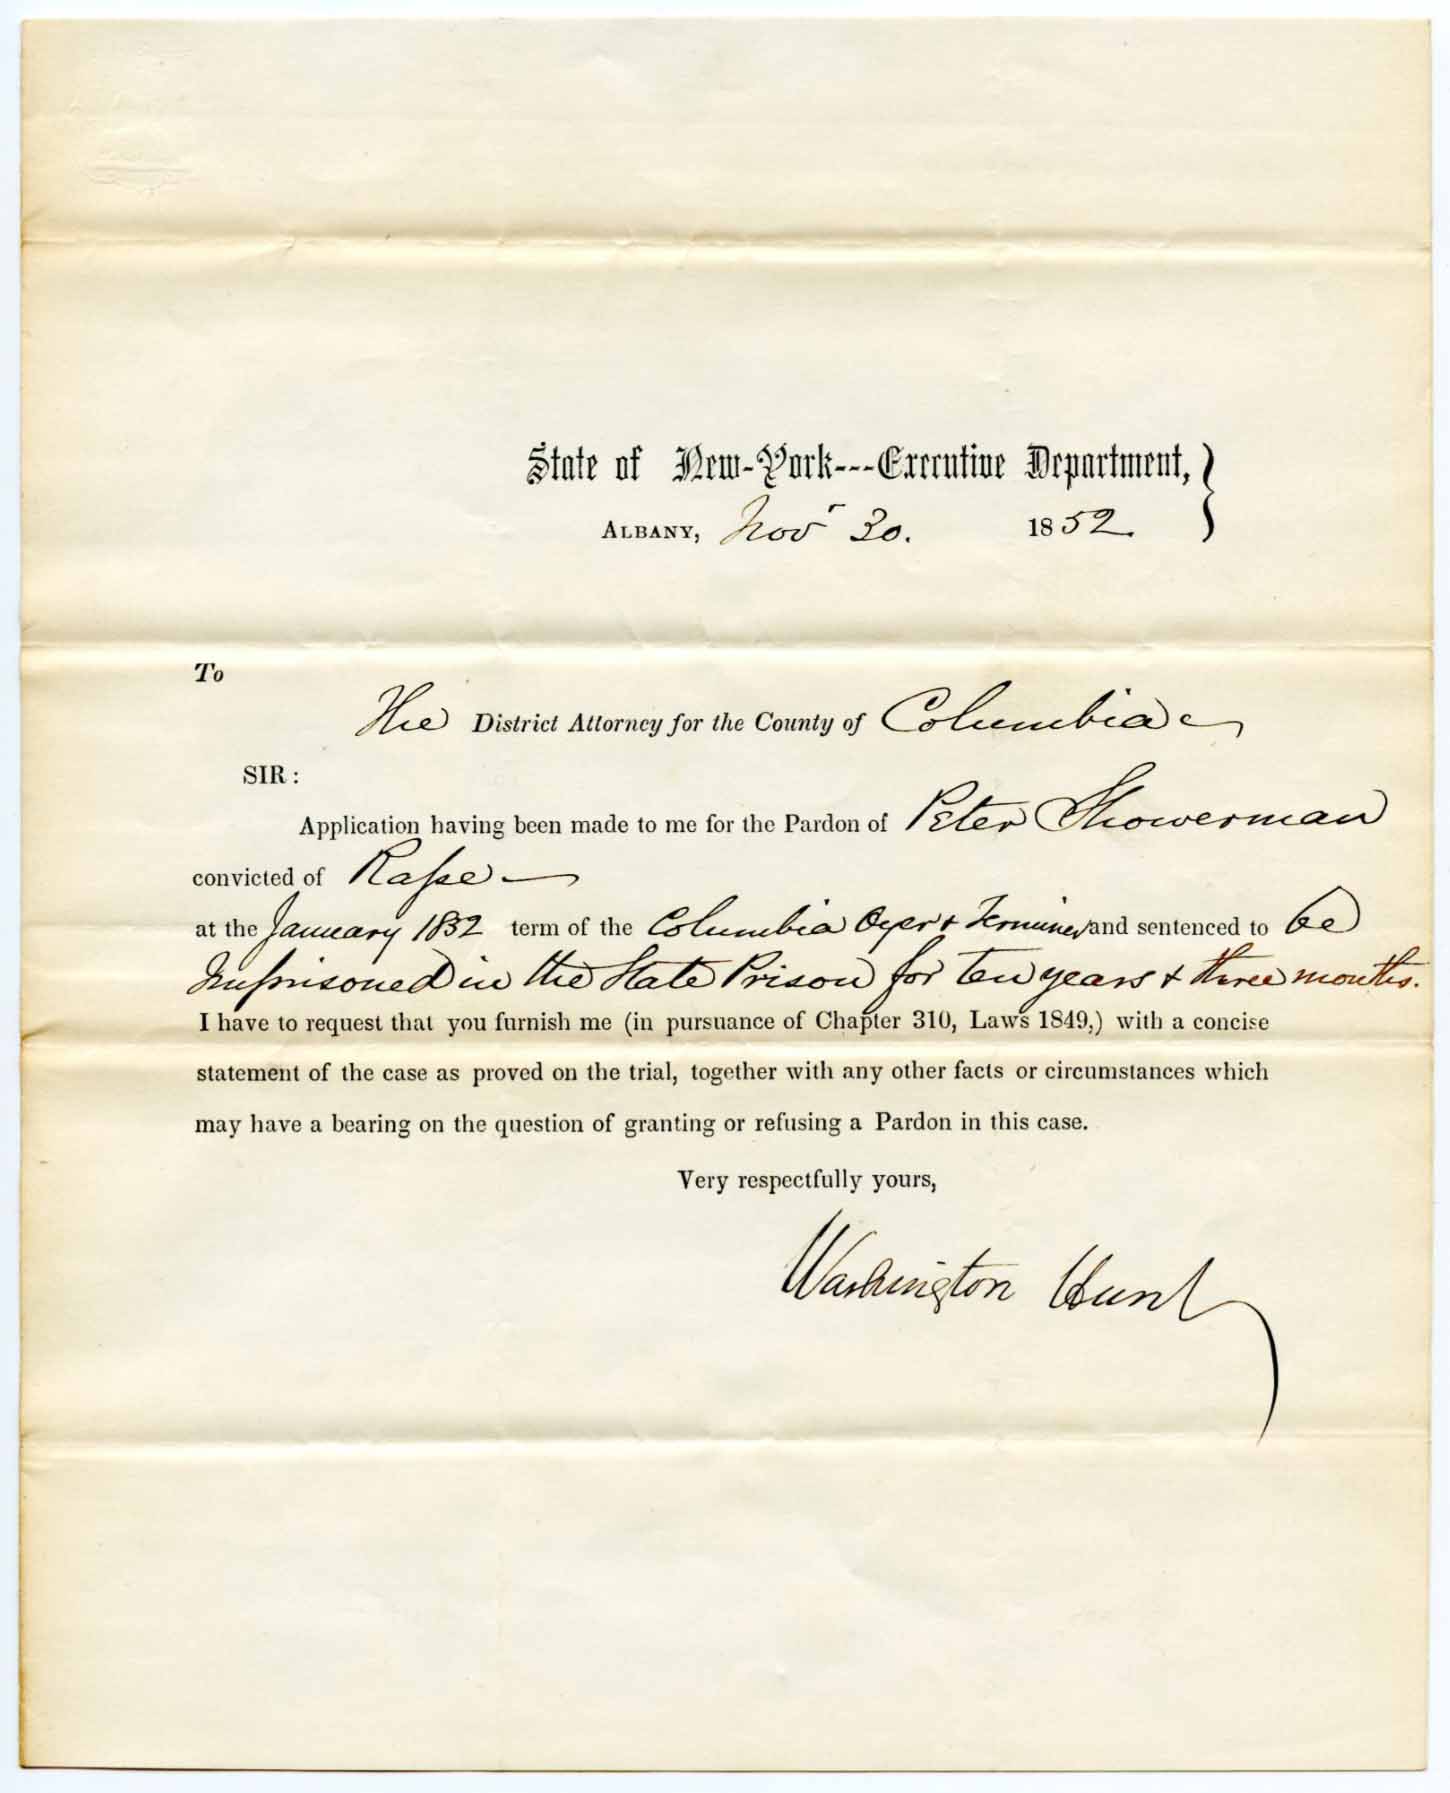 State of New-York---Executive Department,
ALBANY, Nov 30. 1852.
To
The District Attorney for the County of Columbia
SIR:
Application having been made to me for the Pardon of Peter Showerman
convicted of Rape
at the January 1852 term of the Columbia Oyer & Terminer and sentenced to be
Imprisoned in the State Prison for ten years & three months.
I have to request that you furnish me (in pursuance of Chapter 310, Laws 1849,) with a concise
statement of the case as proved on the trial, together with any other facts or circumstances which
may have a bearing on the question of granting or refusing a Pardon in this case.
Very respectfully yours,
Washington Hunt